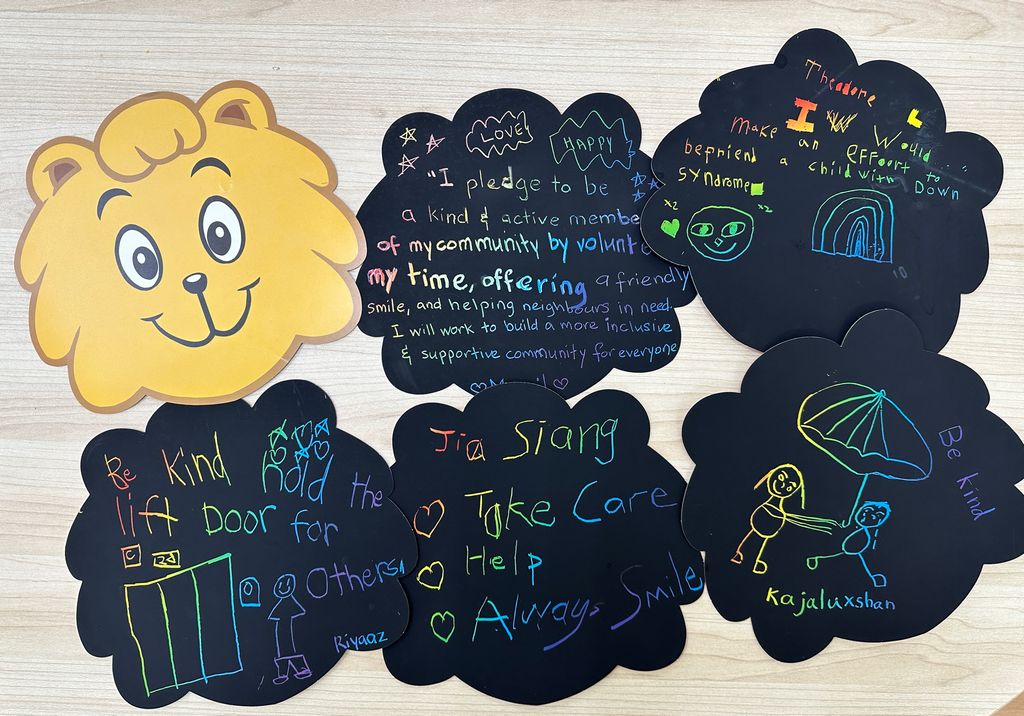 LOVE
HAPPY
"I pledge to be
a kind & active membe
of my community by volunt
my time, offering a friendly
smile, and helping neighbours in need.
I will work to build a more inclusive
& supportive community for everyone
Theodore
I Would....
make an effoort to
befriend a child with Down
syndrome
x2
x2
10
Be Kind hold the
lift Door for
Others
Riyaaz
Jia Siang
Take Care
Help
Always Smile
Be Kind
Kajaluxshan